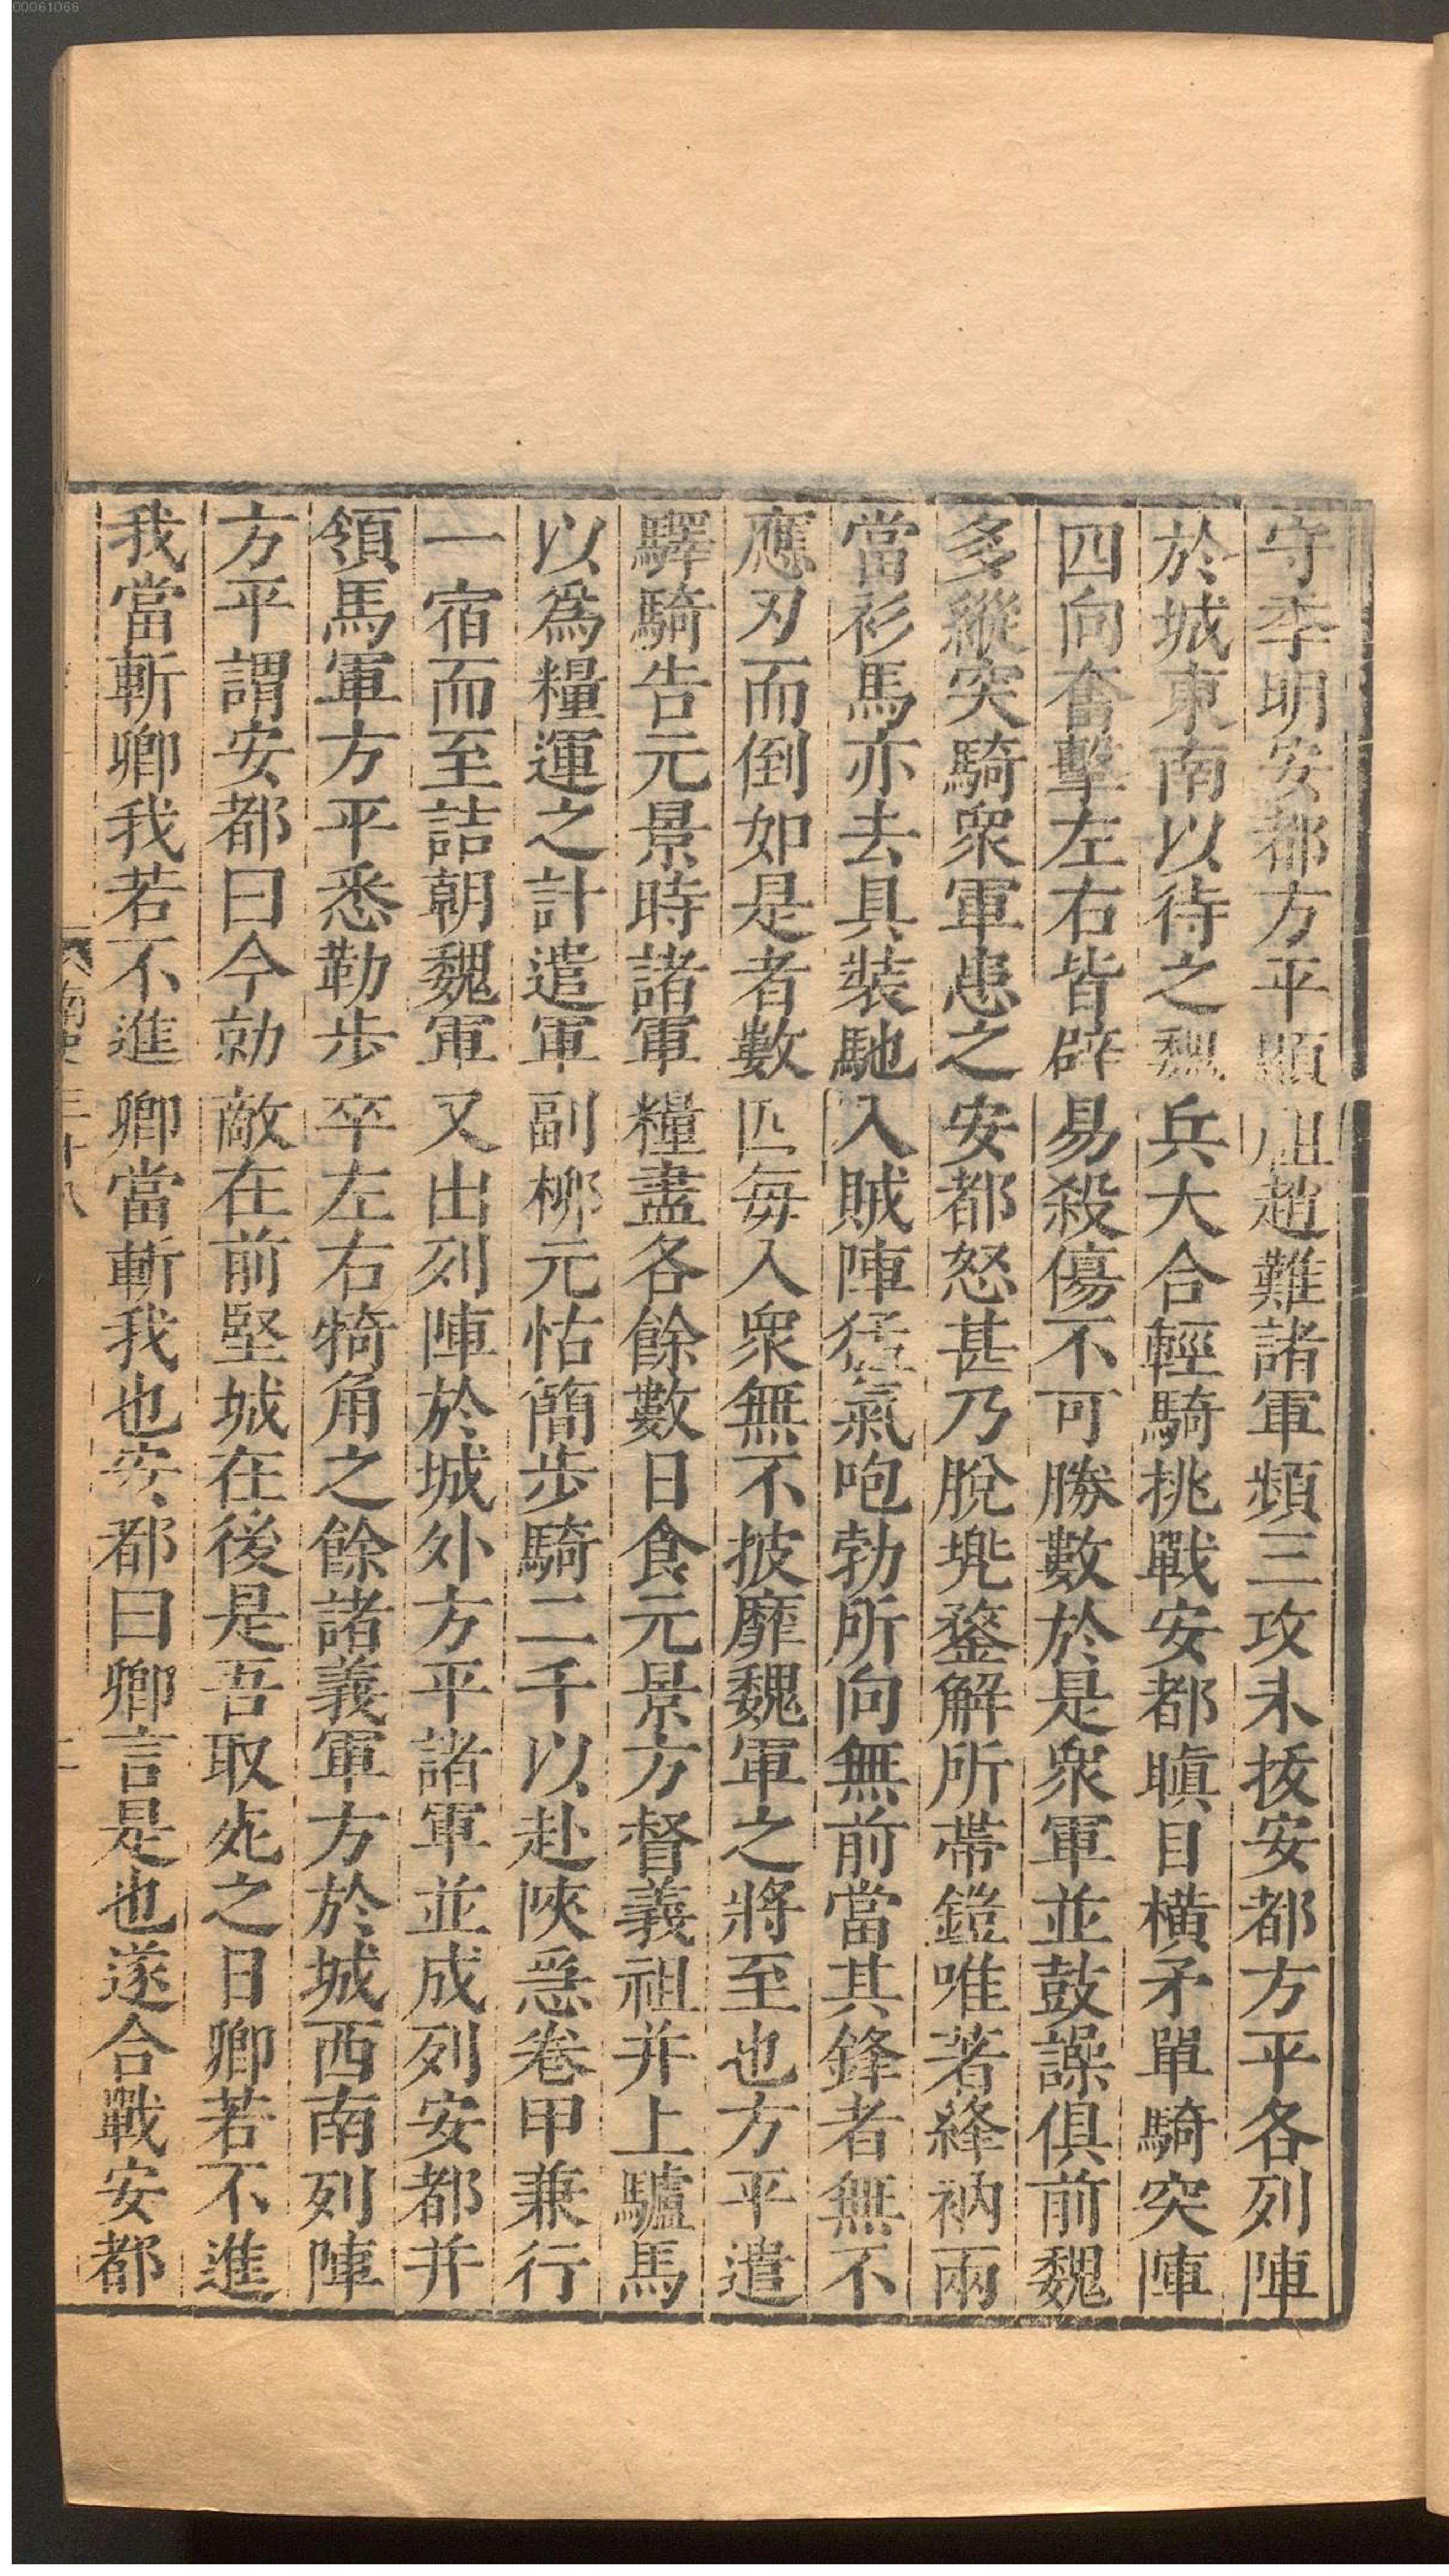 00061066
守季明安都方平顯祖趙難諸軍頻三攻未拔安都方平各列陣
於城東南以待之魏兵大合輕騎挑戰安都瞋目橫矛單騎突陣
四向奮擊左右皆辟易殺傷不可勝數於是衆軍並鼓譟俱前魏
多縱突騎衆軍患之安都怒甚乃脫兠鍪解所帶鎧唯著絳衲兩
當衫馬亦去具裝馳入賊陣猛氣咆勃所向無前當其鋒者無不
應刃而倒如是者數匹每入衆無不披靡魏軍之將至也方平遣
驛騎告元景時諸軍糧盡各餘數日食元景方督義祖并上驢馬
以爲糧運之計遣軍副柳元怙簡步騎二千以赴陝急卷甲兼行
一宿而至詰朝魏軍又出列陣於城外方平諸軍並成列安都并
領馬軍方平悉勒步卒左右犄角之餘諸義軍方於城西南列陣
方平謂安都曰今勍敵在前堅城在後是吾取死之日卿若不進
我當斬卿我若不進卿當斬我也安都曰卿言是也遂合戰安都